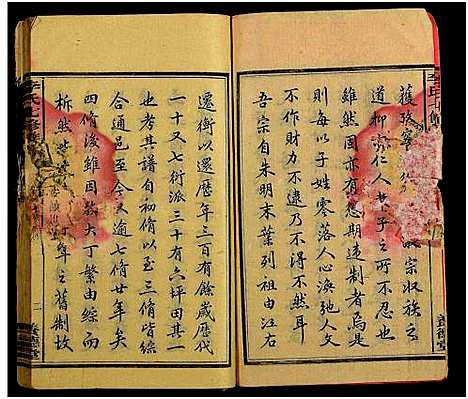 獲孫寧
宗收族之
道抑亦仁人孝子之所不忍也
雖然固亦有愆期違制者焉是
則每以子姓零落人心渙弛人文
不作財力不逮乃不得不爾
吾宗自朱明末葉列祖由江右
遷衡以還歷年三百有餘歲歷代
一十又七衍派三十有六坪田其一
也考其譜自初脩以至三脩皆綜
合通邑至今又逾七脩廿年矣
四脩後雖因教大丁繁由綜而
析然
年之舊制故
李氏七修
二
義德堂